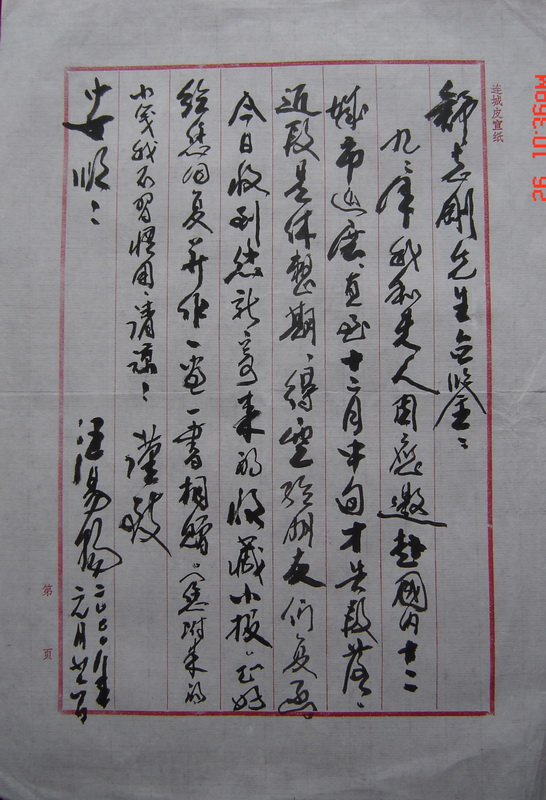 舒志刚先生台鉴：
九九年我和夫人因应邀赴國内十二
城市巡展，直至十二月中旬才告段落，
近段是休整期，得空给朋友们复函。
今日收到您新寄来的收藏小报，正好
给您回复并作一画一书相赠。（您附来的
小笺我不習惯用，请諒！ 谨致
安顺！
汪易扬 二〇〇〇年
元月廿一日
连城皮宣纸
第 页